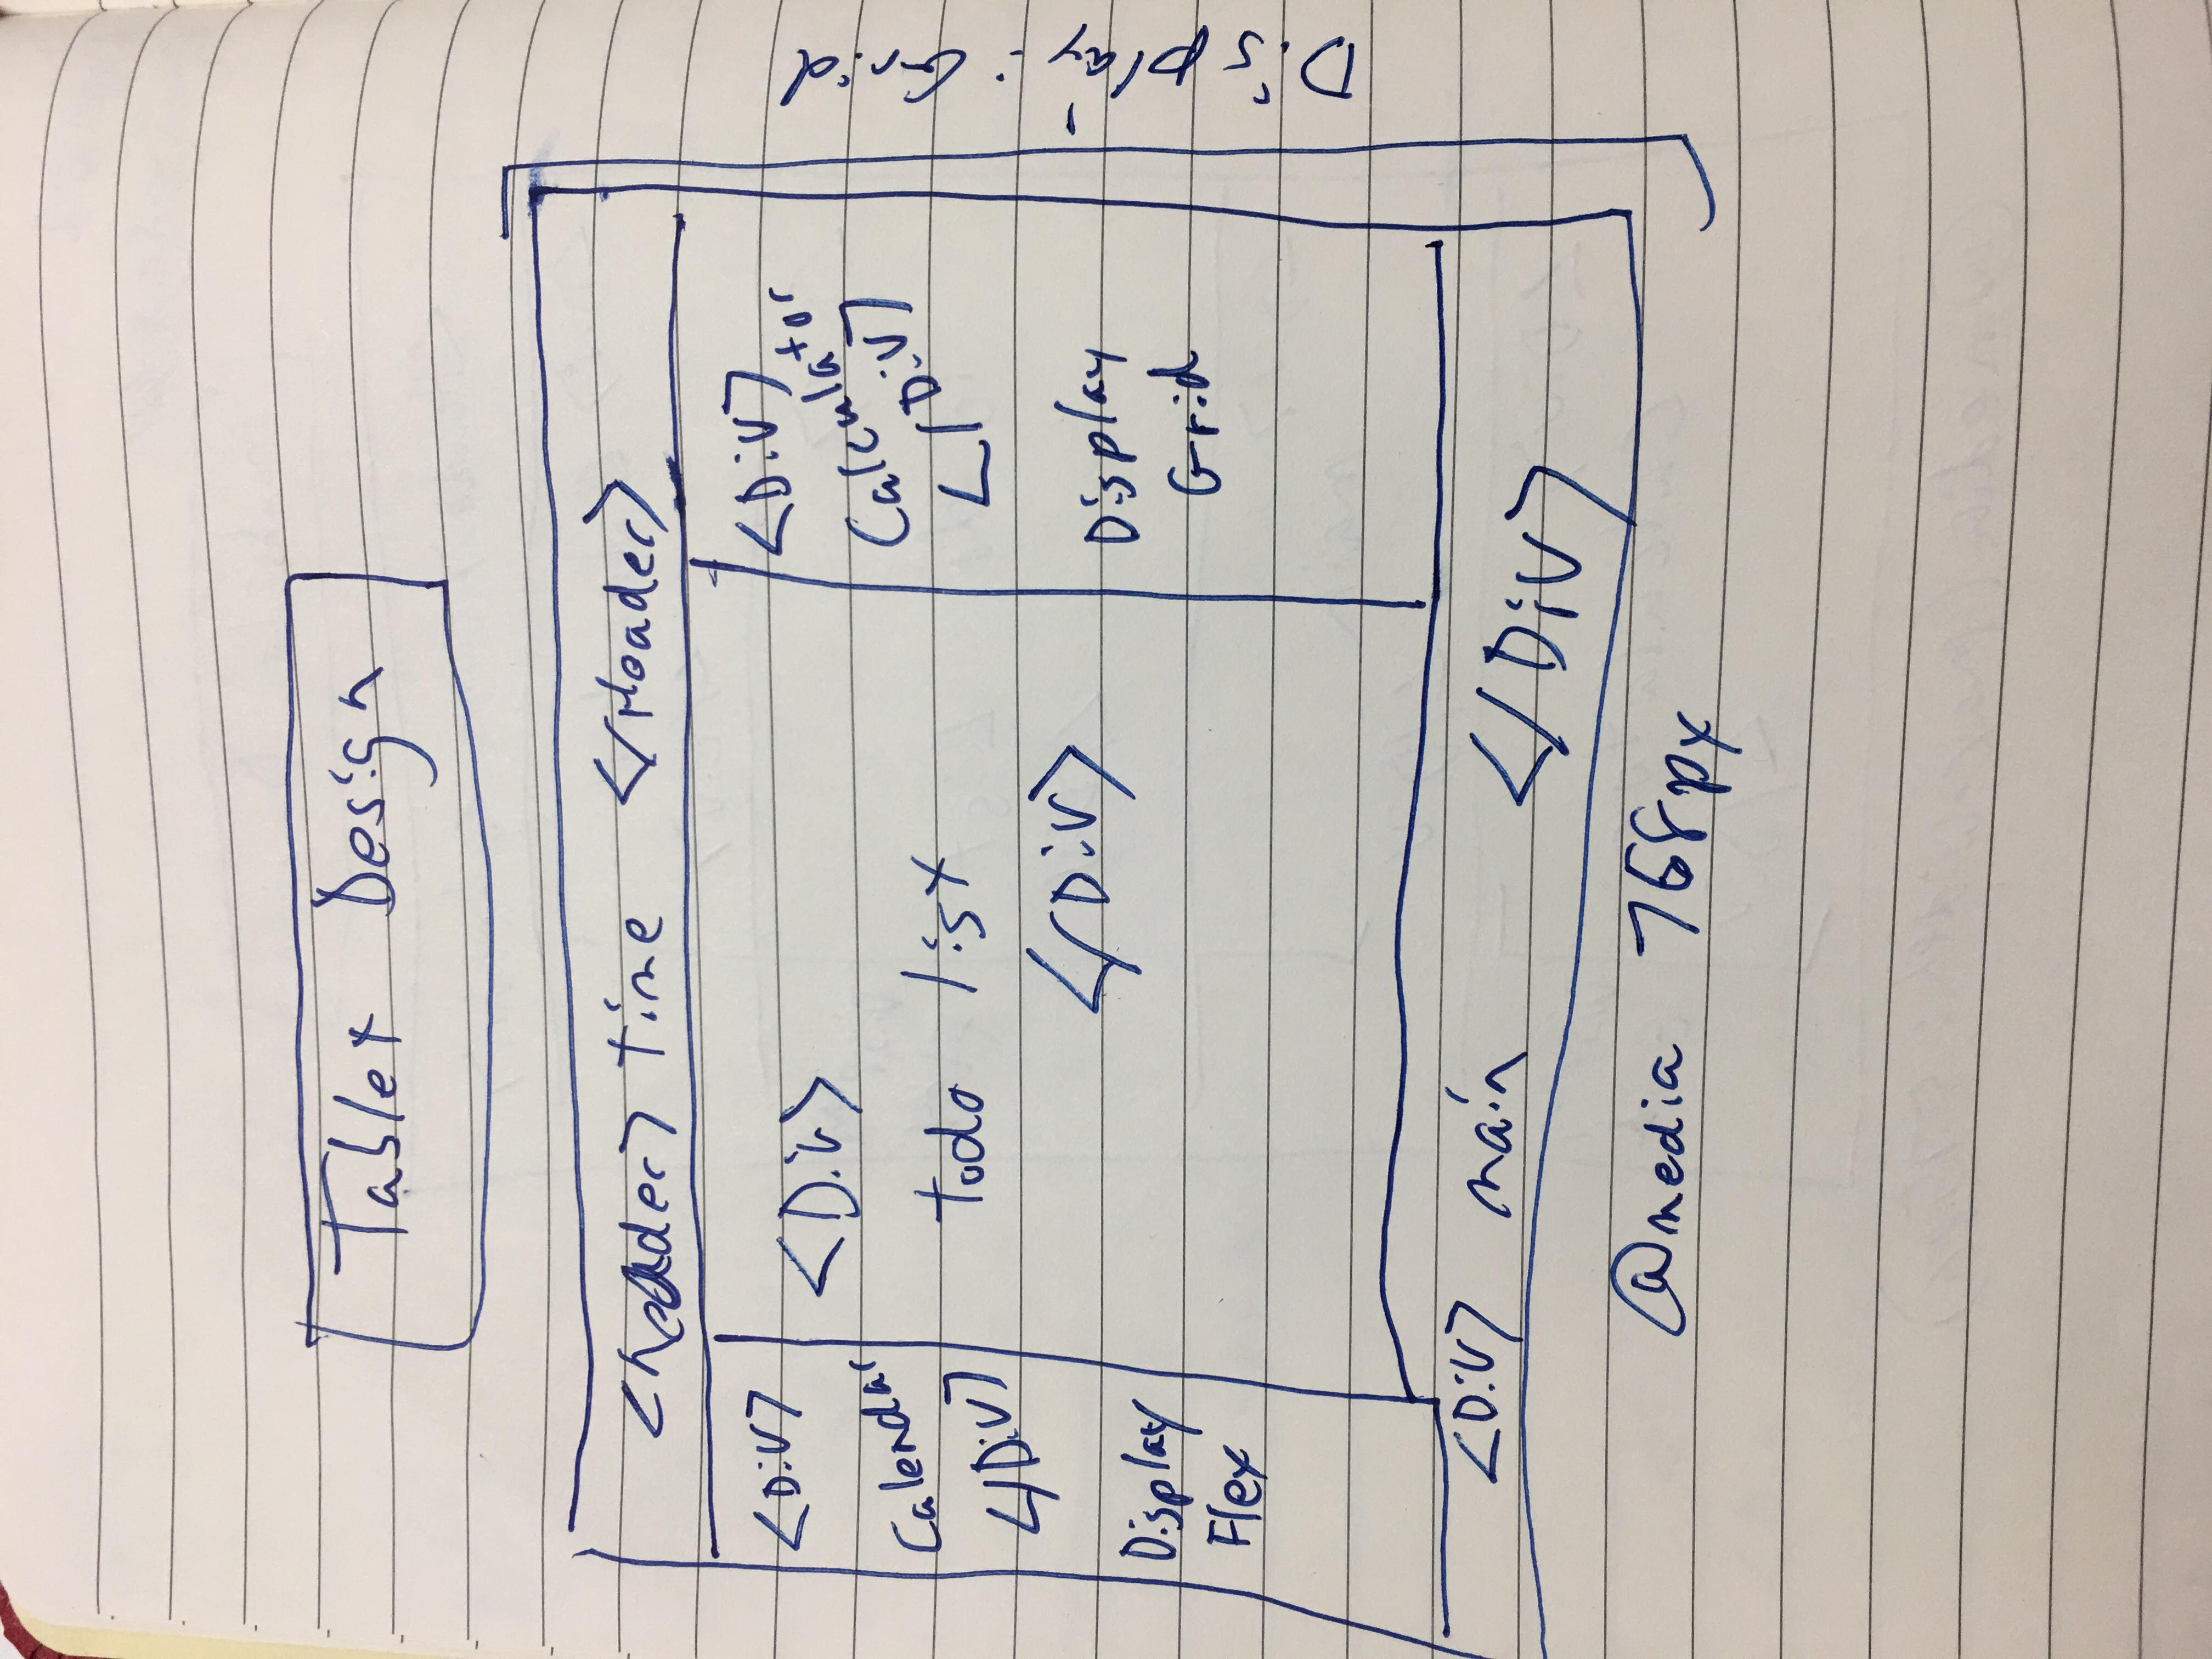 Tablet Design
<header> time </Header>
<Div>
Calendar
</Div>
Display
Flex
<Div>
todo list
</Div>
<Div>
Calculator
</Div>
Display
Grid
<Div> main </Div>
@media 768px
Display: Grid